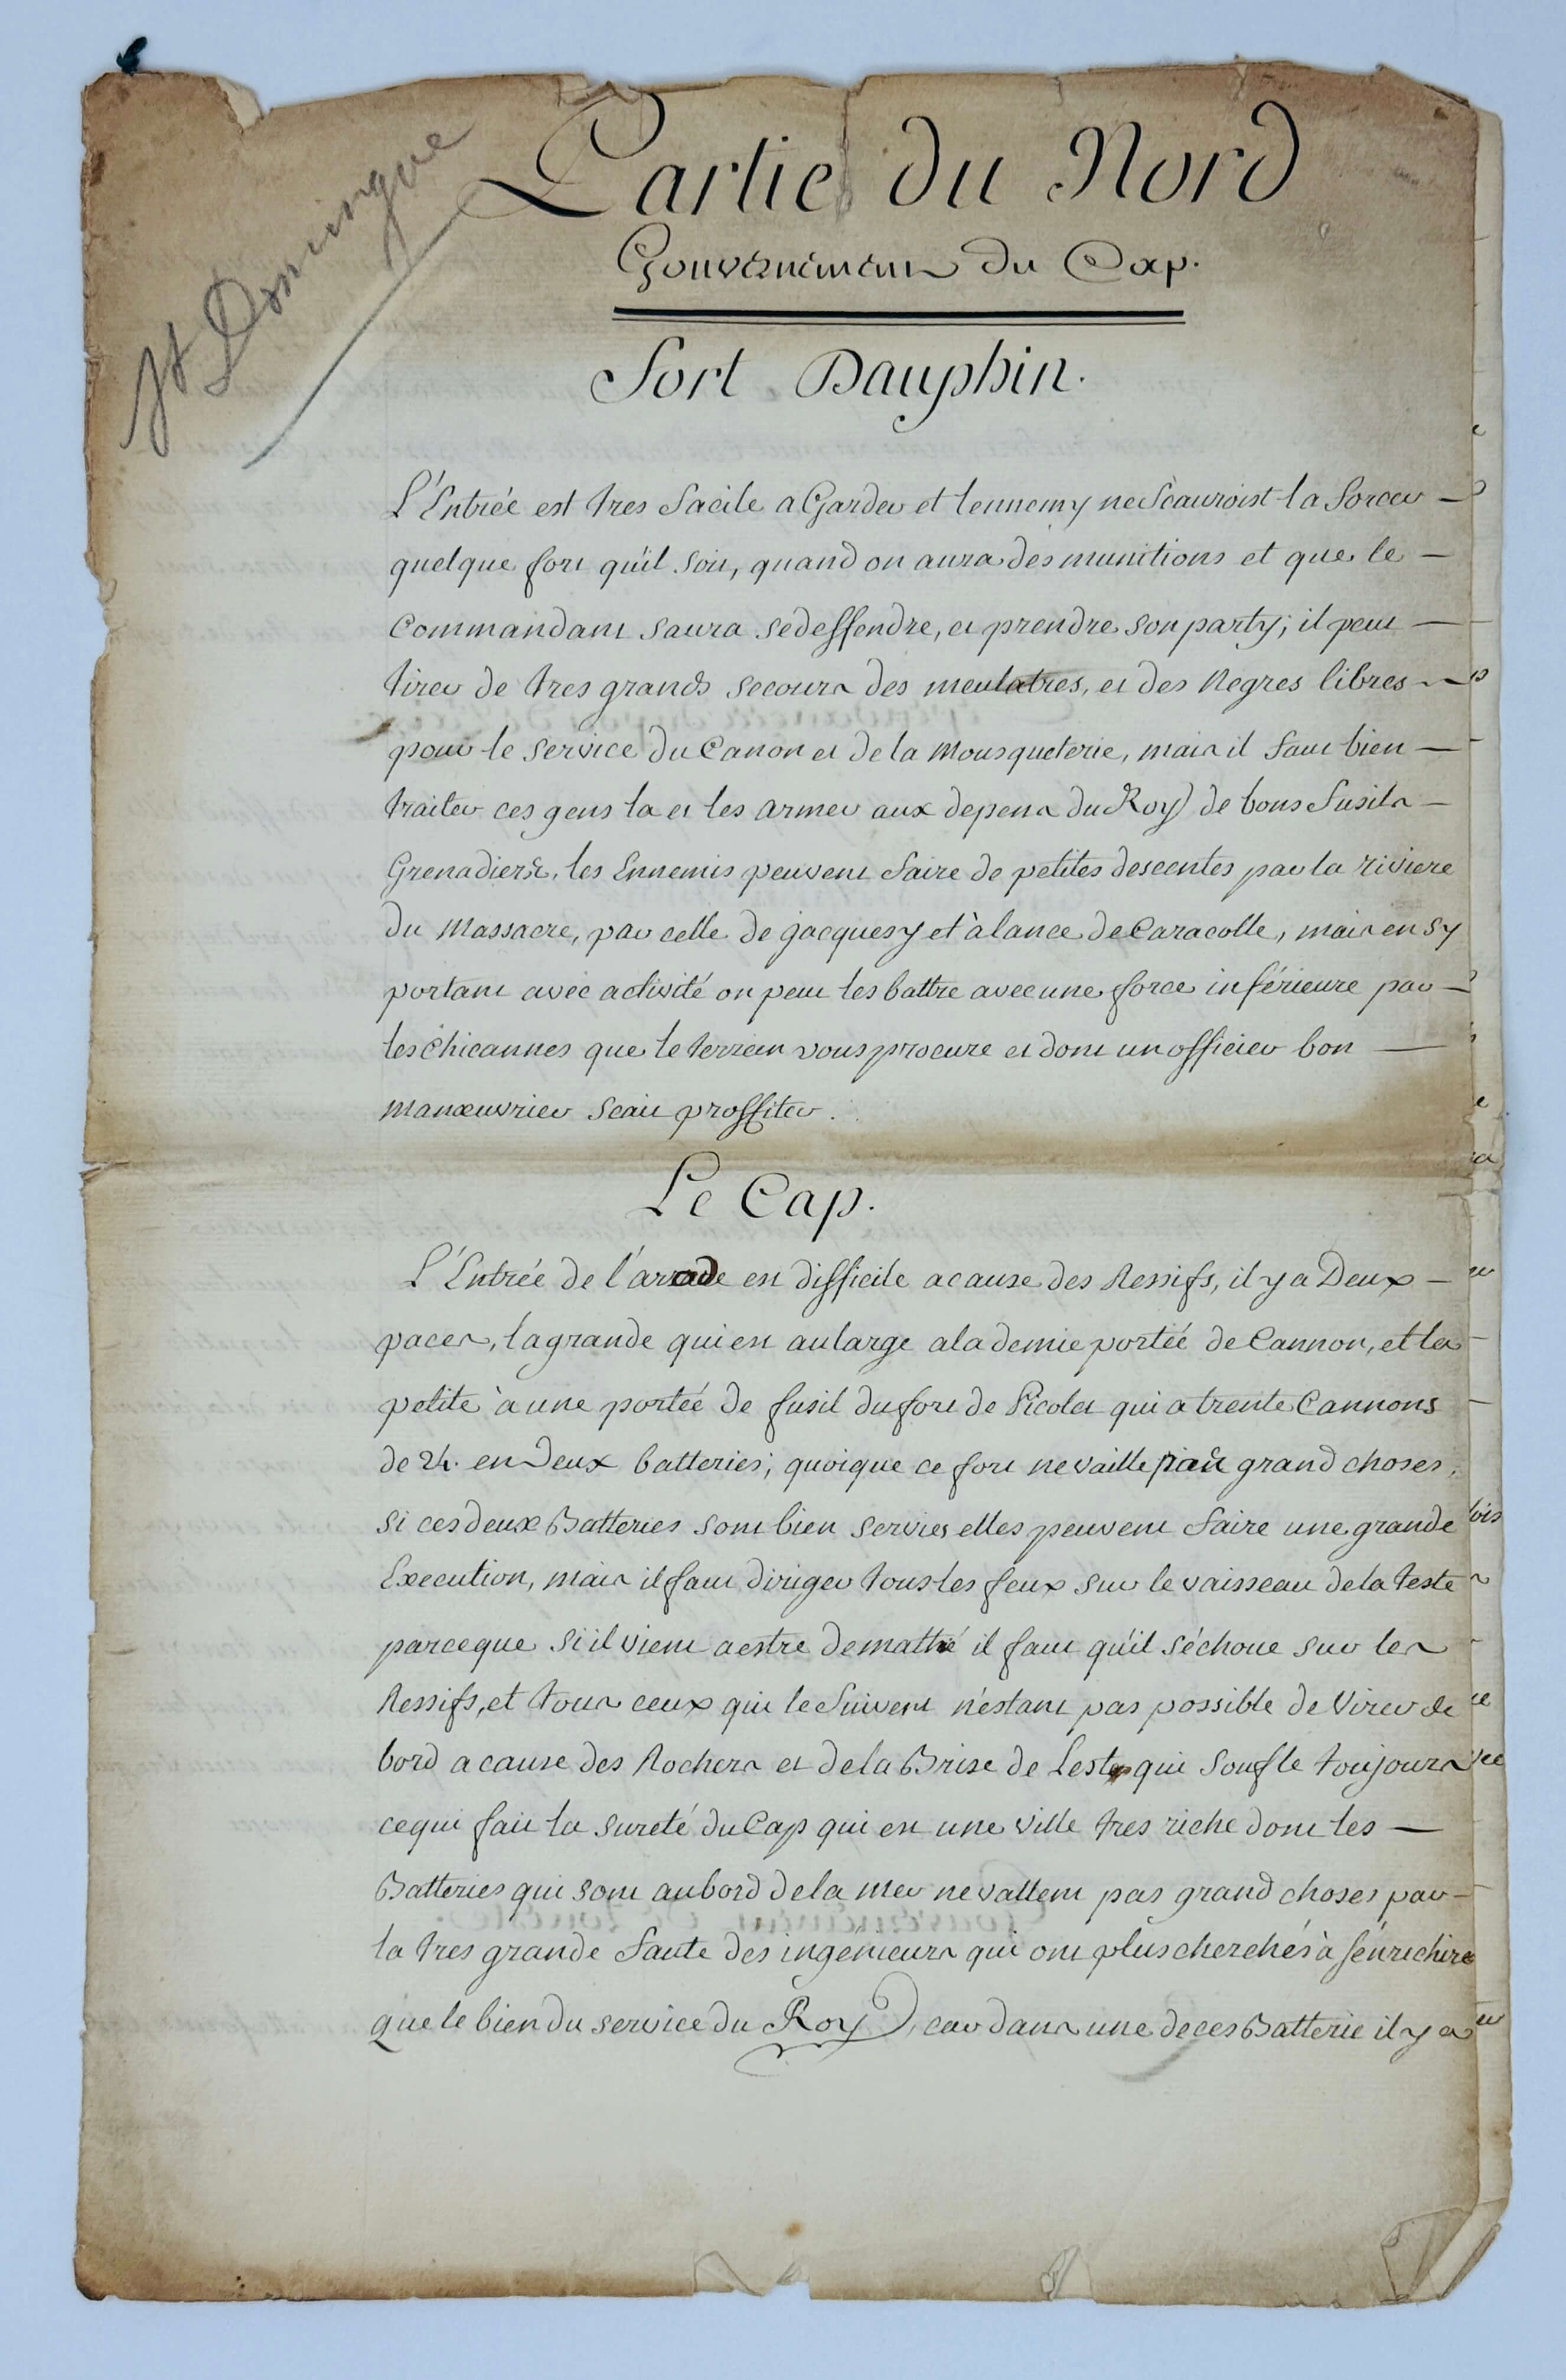 St Domingue
Partie du Nord
Gouvernement du Cap.
Fort Dauphin.
L'Entrée est tres facile a Garder et lennemy ne sçauroist la forcer —
quelque fort qu'il soit, quand on aura des munitions et que le —
Commandant saura sedeffendre, et prendre son party; il peut —
tirer de tres grands secours des meulatres, et des Negres libres —
pour le service du Canon et de la Mousqueterie, mais il faut bien —
traiter ces gens la et les armer aux depens du Roy de bons fusils —
Grenadiers, les Ennemis peuvent faire de petites descentes par la riviere
du Massacre, par celle de jacquesy et à lance de Caracolle, mais en sy
portant avec activité on peut les battre avec une force inférieure par —
les Chicannes que le terrein vous procure et dont un officier bon —
manœuvrier scait proffiter.
Le Cap.
L'Entrée de l'arade est difficile a cause des Ressifs, il y a Deux —
paces, la grande qui est au large a la demie portéé de Cannon, et la
petite à une portéé de fusil du fort de Picolet qui a trente Cannons
de 24. en Deux batteries; quoique ce fort ne vaille pas grand choses,
si ces deux Batteries sont bien servies elles peuvent faire une grande
Execution, mais il faut diriger tous les feux sur le vaisseau de la teste
parceque si il vient a estre demathé il faut qu'il s'échoue sur les
Ressifs, et tous ceux qui le suivent n'estant pas possible de Virer de
bord a cause des Rochers et de la Brise de Leste qui soufle toujours
ce qui fait la sureté du Cap qui est une ville tres riche dont les —
Batteries qui sont au bord de la mer ne vallent pas grand choses par —
la tres grande faute des ingenieurs qui ont plus cherchés à s'énrichire
que le bien du service du Roy, car dans une de ces Batterie il y a